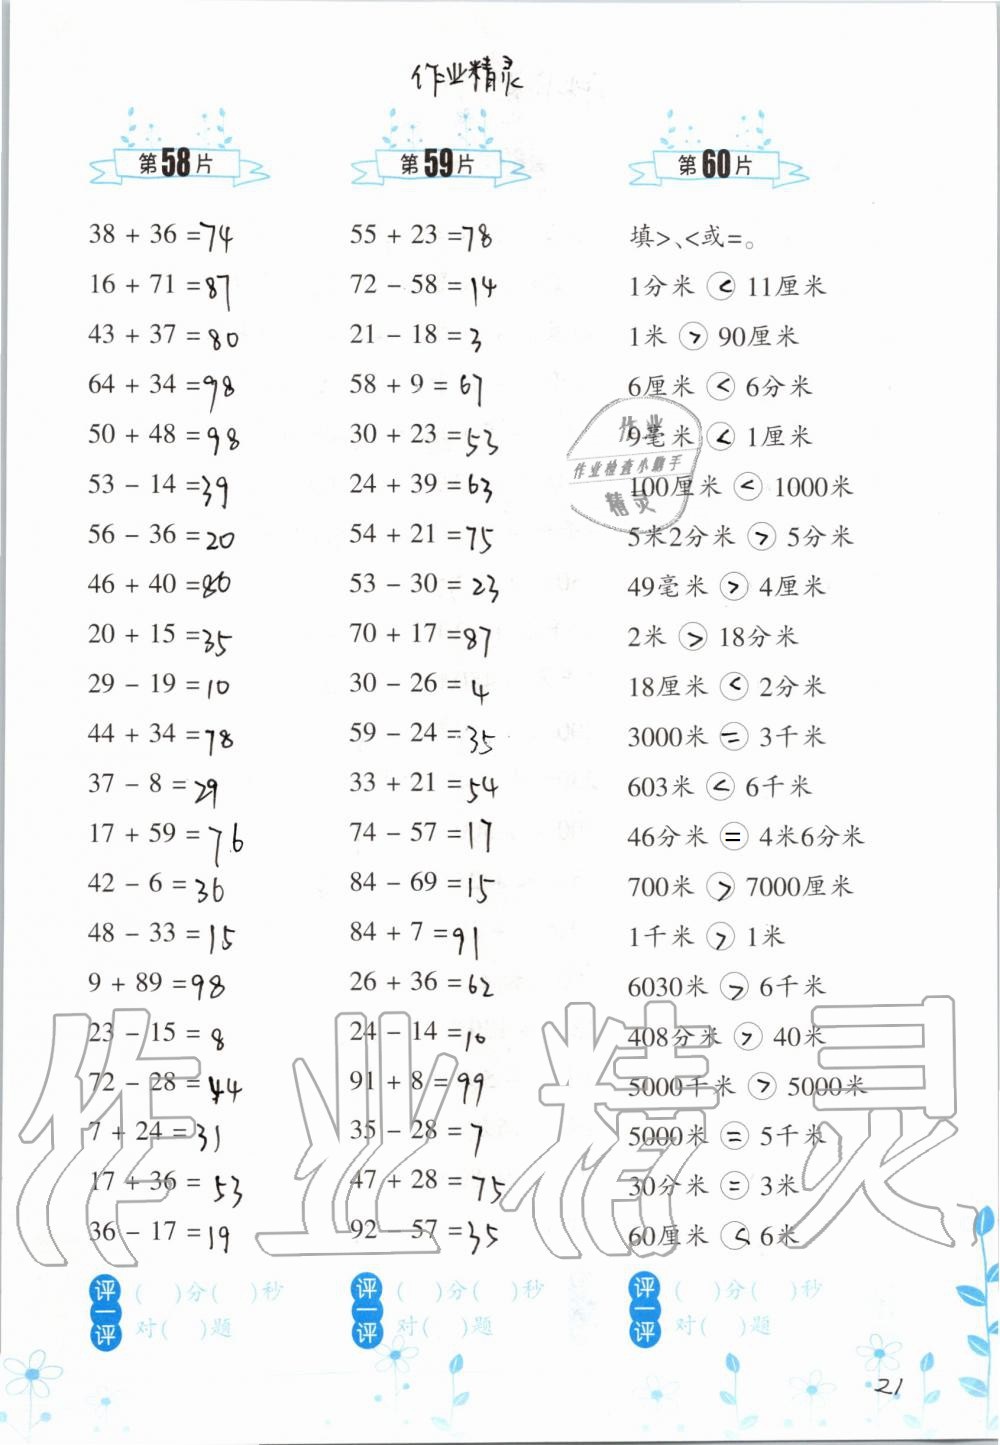 作业精灵
第58片
38 + 36 = 74
16 + 71 = 87
43 + 37 = 80
64 + 34 = 98
50 + 48 = 98
53 - 14 = 39
56 - 36 = 20
46 + 40 = 86
20 + 15 = 35
29 - 19 = 10
44 + 34 = 78
37 - 8 = 29
17 + 59 = 76
42 - 6 = 36
48 - 33 = 15
9 + 89 = 98
23 - 15 = 8
72 - 28 = 44
7 + 24 = 31
17 + 36 = 53
36 - 17 = 19
评一评
( )分( )秒
对( )题
第59片
55 + 23 = 78
72 - 58 = 14
21 - 18 = 3
58 + 9 = 67
30 + 23 = 53
24 + 39 = 63
54 + 21 = 75
53 - 30 = 23
70 + 17 = 87
30 - 26 = 4
59 - 24 = 35
33 + 21 = 54
74 - 57 = 17
84 - 69 = 15
84 + 7 = 91
26 + 36 = 62
24 - 14 = 10
91 + 8 = 99
35 - 28 = 7
47 + 28 = 75
92 - 57 = 35
评一评
( )分( )秒
对( )题
第60片
填>、<或=。
1分米 < 11厘米
1米 > 90厘米
6厘米 < 6分米
9毫米 < 1厘米
100厘米 < 1000米
5米2分米 > 5分米
49毫米 > 4厘米
2米 > 18分米
18厘米 < 2分米
3000米 = 3千米
603米 < 6千米
46分米 = 4米6分米
700米 > 7000厘米
1千米 > 1米
6030米 > 6千米
408分米 > 40米
5000千米 > 5000米
5000米 = 5千米
30分米 = 3米
60厘米 < 6米
评一评
( )分( )秒
对( )题
作业
作业检查小助手
精灵
作业精灵
21